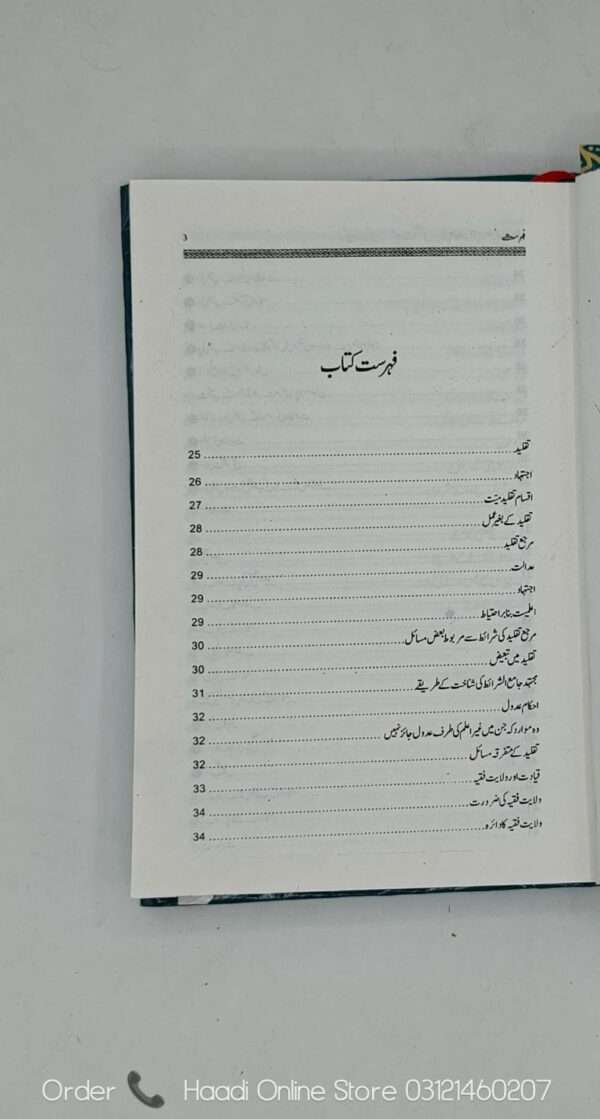 فہرست 3
فہرست کتاب
تقلید 25
اجتہاد 26
اقسام تقلید میّت 27
تقلید کے بغیر عمل 28
مرجع تقلید 28
عدالت 29
اجتہاد 29
اعلمیت بنابر احتیاط 29
مرجع تقلید کی شرائط سے مربوط بعض مسائل 30
تقلید میں تبعیض 30
مجتہد جامع الشرائط کی شناخت کے طریقے 31
احکام عدول 32
وہ موارد کہ جن میں غیر اعلم کی طرف عدول جائز نہیں 32
تقلید کے متفرقہ مسائل 32
قیادت اور ولایت فقیہ 33
ولایت فقیہ کی ضرورت 34
ولایت فقیہ کا دائرہ 34
Order Haadi Online Store 03121460207